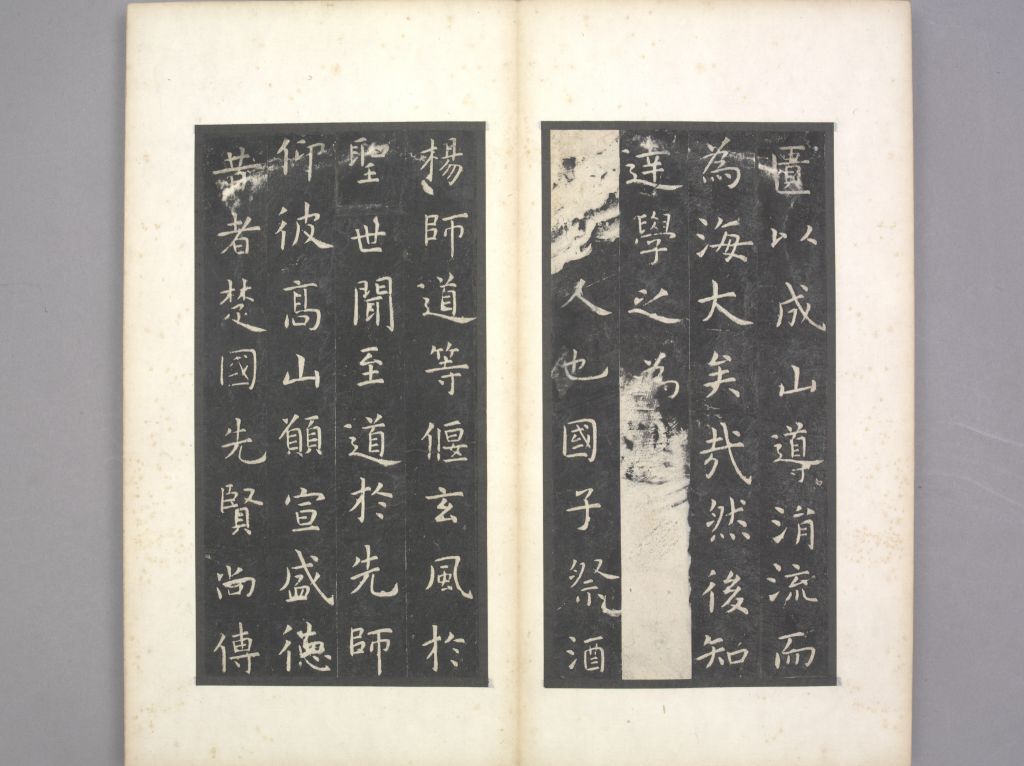 匱以成山導涓流而
為海大矣哉然後知
達學之為
人也國子祭酒
楊師道等偃玄風於
聖世聞至道於先師
仰彼高山願宣盛德
昔者楚國先賢尚傳